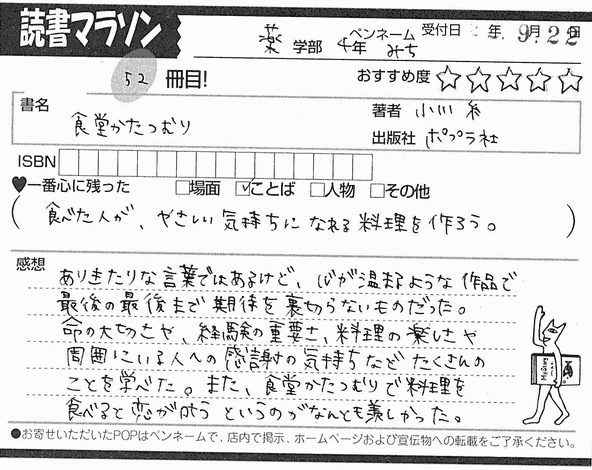 読書マラソン
薬 学部 4年 ペンネーム みち 受付日 年 9月22日
52 冊目!
おすすめ度 ☆☆☆☆☆
書名 食堂かたつむり
著者 小川糸
出版社 ポプラ社
ISBN
♥一番心に残った □場面 ☑ことば □人物 □その他
(食べた人が、やさしい気持ちになれる料理を作ろう。)
感想
ありきたりな言葉ではあるけど、心が温まるような作品で
最後の最後まで期待を裏切らないものだった。
命の大切さや、経験の重要さ、料理の楽しさや
周囲にいる人への感謝の気持ちなどたくさんの
ことを学べた。また、食堂かたつむりで料理を
食べると恋が叶うというのがなんとも羨しかった。
●お寄せいただいたPOPはペンネームで、店内で掲示、ホームページおよび宣伝物への転載をご了承ください。